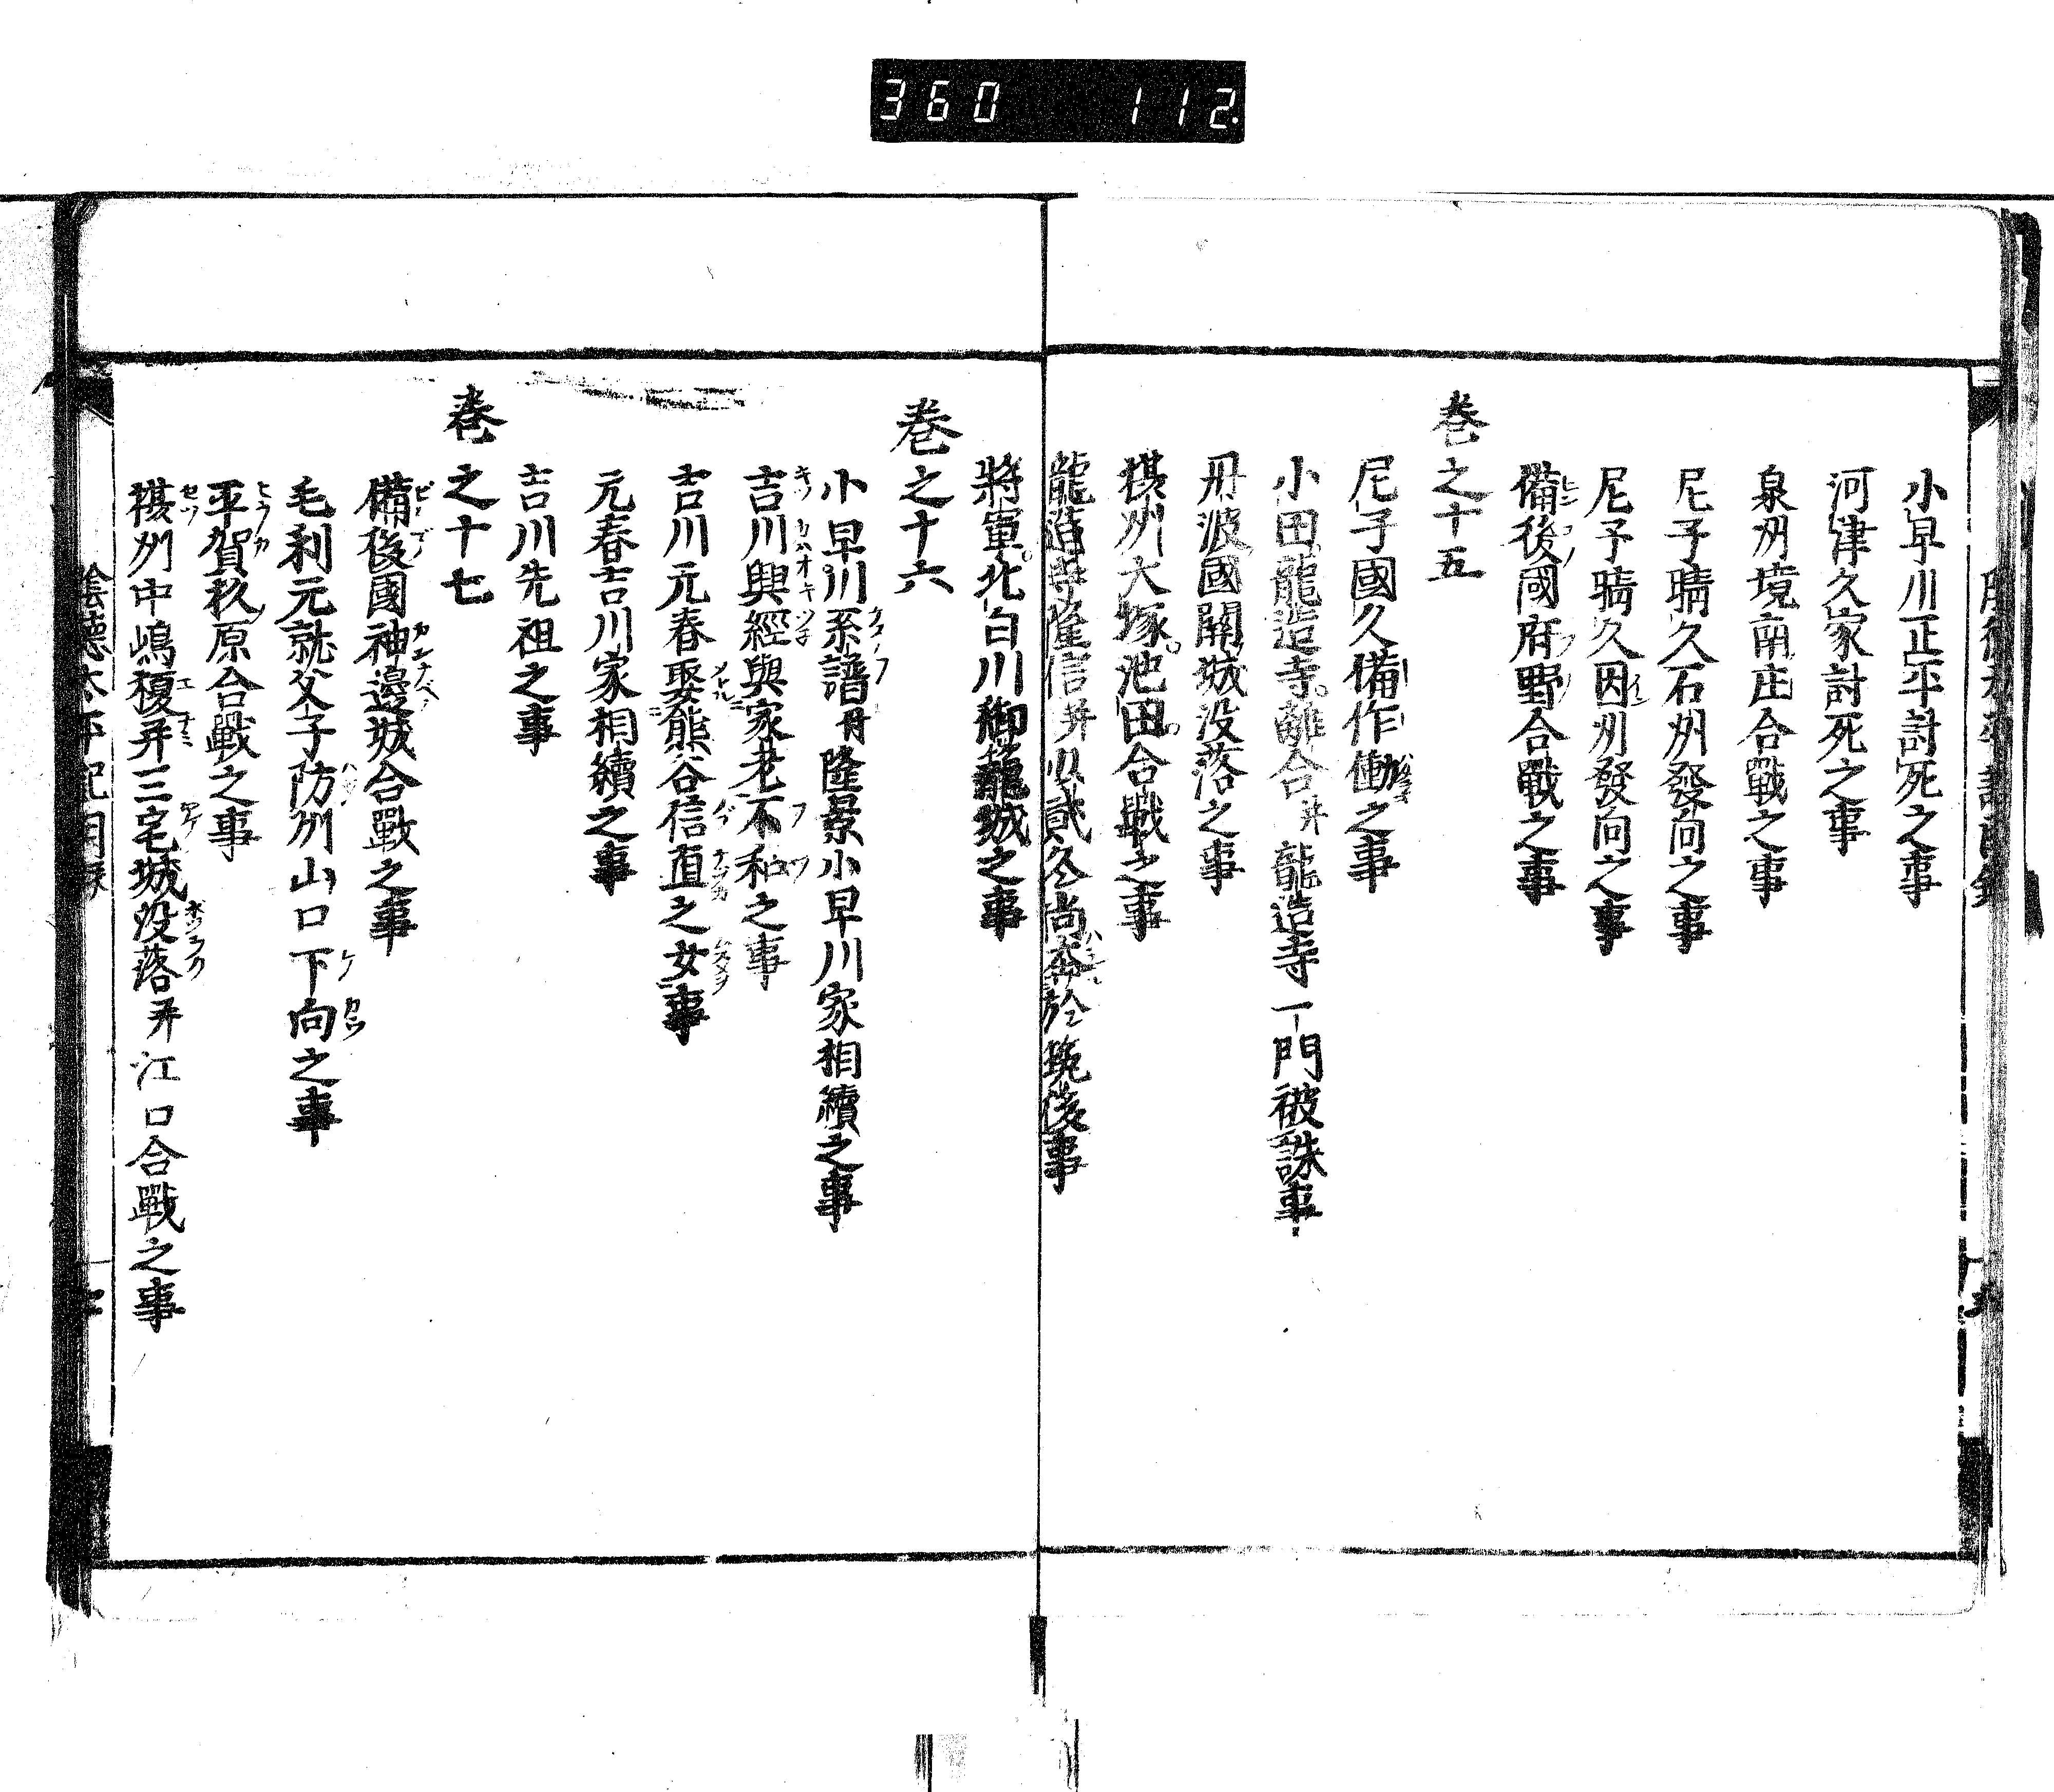 360 112.
小早川正平討死之事
河津久家討死之事
泉州境南庄合戰之事
尼子晴久石州發向之事
尼子晴久因州發向之事
備後國府野合戰之事
巻之十五
尼子國久備作働之事
小田龍造寺離合并龍造寺一門被誅事
丹波國關城没落之事
摂州大塚池田合戰之事
龍造寺隆信并少貳久尚奔於筑後事
將軍北白川御籠城之事
巻之十六
小早川系譜并隆景小早川家相續之事
吉川興經與家老不和之事
吉川元春娶熊谷信直之女事
元春吉川家相續之事
吉川先祖之事
巻之十七
備後國神邊城合戰之事
毛利元就父子防州山口下向之事
平賀秋原合戰之事
摂州中嶋榎并三宅城没落并江口合戰之事
陰德太平記目録